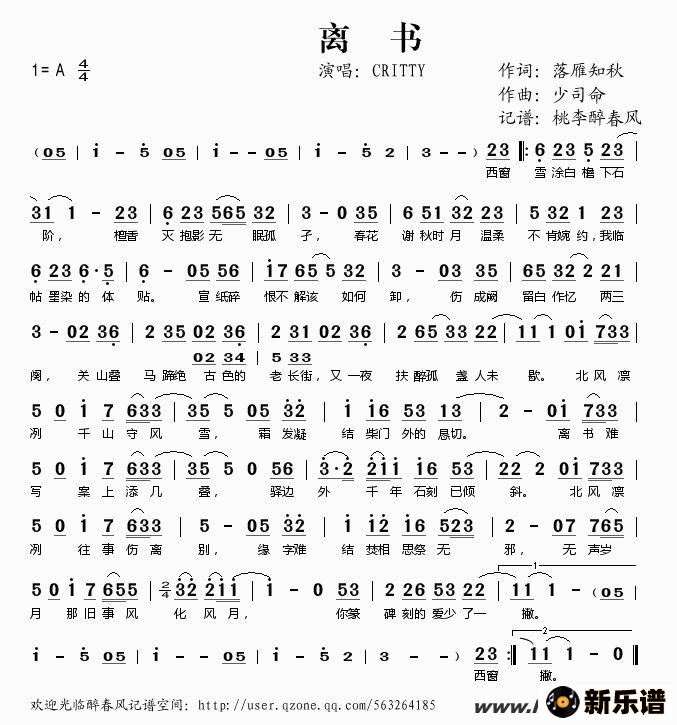 离 书
1= A 4/4 演唱: CRITTY 作词: 落雁知秋
作曲: 少司命
记谱: 桃李醉春风
(05 | i - 5 05 | i - 5 05 | i - 5 2 | 3 - -) 23 ‖: 6 23 5 23 |
西窗 雪 涂白 檐 下石
31 1 - 23 | 6 23 565 32 | 3 - 0 35 | 6 51 32 23 | 5 32 1 23 |
阶, 檀香 灭 抱影无 眠孤 孑, 春花 谢 秋时 月 温柔 不 肯婉 约,我临
6 23 6·5 | 6 - 05 56 | i7 65 5 35 | 3 - 03 35 | 65 32 2 21 |
帖 墨染 的 体 贴。 宣 纸碎 恨不 解该 如何 卸, 伤 成阙 留白 作忆 两三
3 - 02 36 | 2 35 02 36 | 2 31 02 36 | 2 65 33 22 | 11 1 0i 733 |
02 34 | 5 33
阕, 关 山叠 马 蹄绝 古 色的 老 长街, 又 一夜 扶 醉孤 盏 人未 歇。 北 风 凛
5 0 i 7 633 | 35 5 05 32 | i2 i6 53 13 | 2 - 0i 733 |
冽 千 山 守 风 雪, 霜 发凝 结 柴门 外的 悬切。 离 书 难
5 0 i 7 633 | 35 5 0 56 | 3·2 2ii i6 53 | 22 2 0i 733 |
写 案 上 添 几 叠, 驿边 外 千 年 石刻 已倾 斜。 北 风 凛
5 0 i 7 633 | 5 - 05 32 | i i2 i6 523 | 2 - 07 765 |
冽 往 事 伤 离 别, 缘 字难 结 焚相 思祭 无 邪, 无 声岁
5 0 i 7 655 | 2/4 32 2ii | i - 0 53 | 2 26 53 22 | 11 1 - (05 |
1
月 那 旧 事 风 化 风 月, 你篆 碑 刻的 爱少 了一 撇。
i - 5 05 | i - - 05 | i - 5 05 | 6 - - -) 23 :‖ 11 1 - ‖
2
西窗 撇。
欢迎光临醉春风记谱空间: http://user.qzone.qq.com/563264185
新乐谱